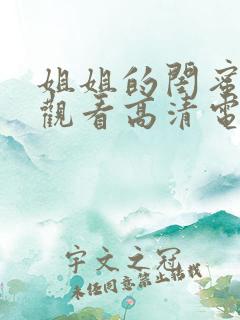 姐姐的閨蜜
觀看高清電
宇文之冠
未經同意禁止搭戟